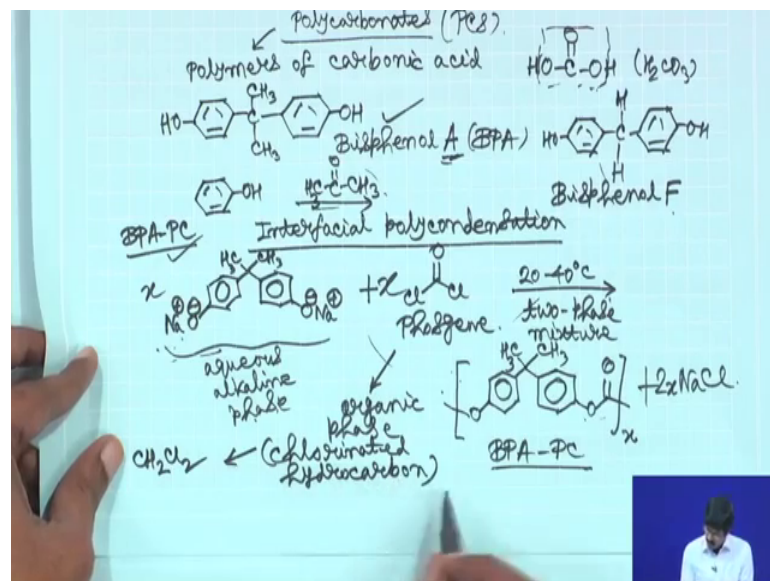 Polycarbonates (PCs)
Polymers of carbonic acid
O
HO-C-OH (H2CO3)
CH3
HO- -C- -OH
CH3
Bisphenol A (BPA)
H
HO- -C- -OH
H
Bisphenol F
-OH
O
H3C-C-CH3
BPA-PC
Interfacial polycondensation
x
H3C CH3
Na⊕ O⊖
O⊖ Na⊕
+x
O
Cl Cl
Phosgene
20-40°C
two-phase
mixture
aqueous
alkaline
phase
organic
phase
(chlorinated
hydrocarbon)
CH2Cl2
H3C CH3
O
O O
x
+2xNaCl
BPA-PC